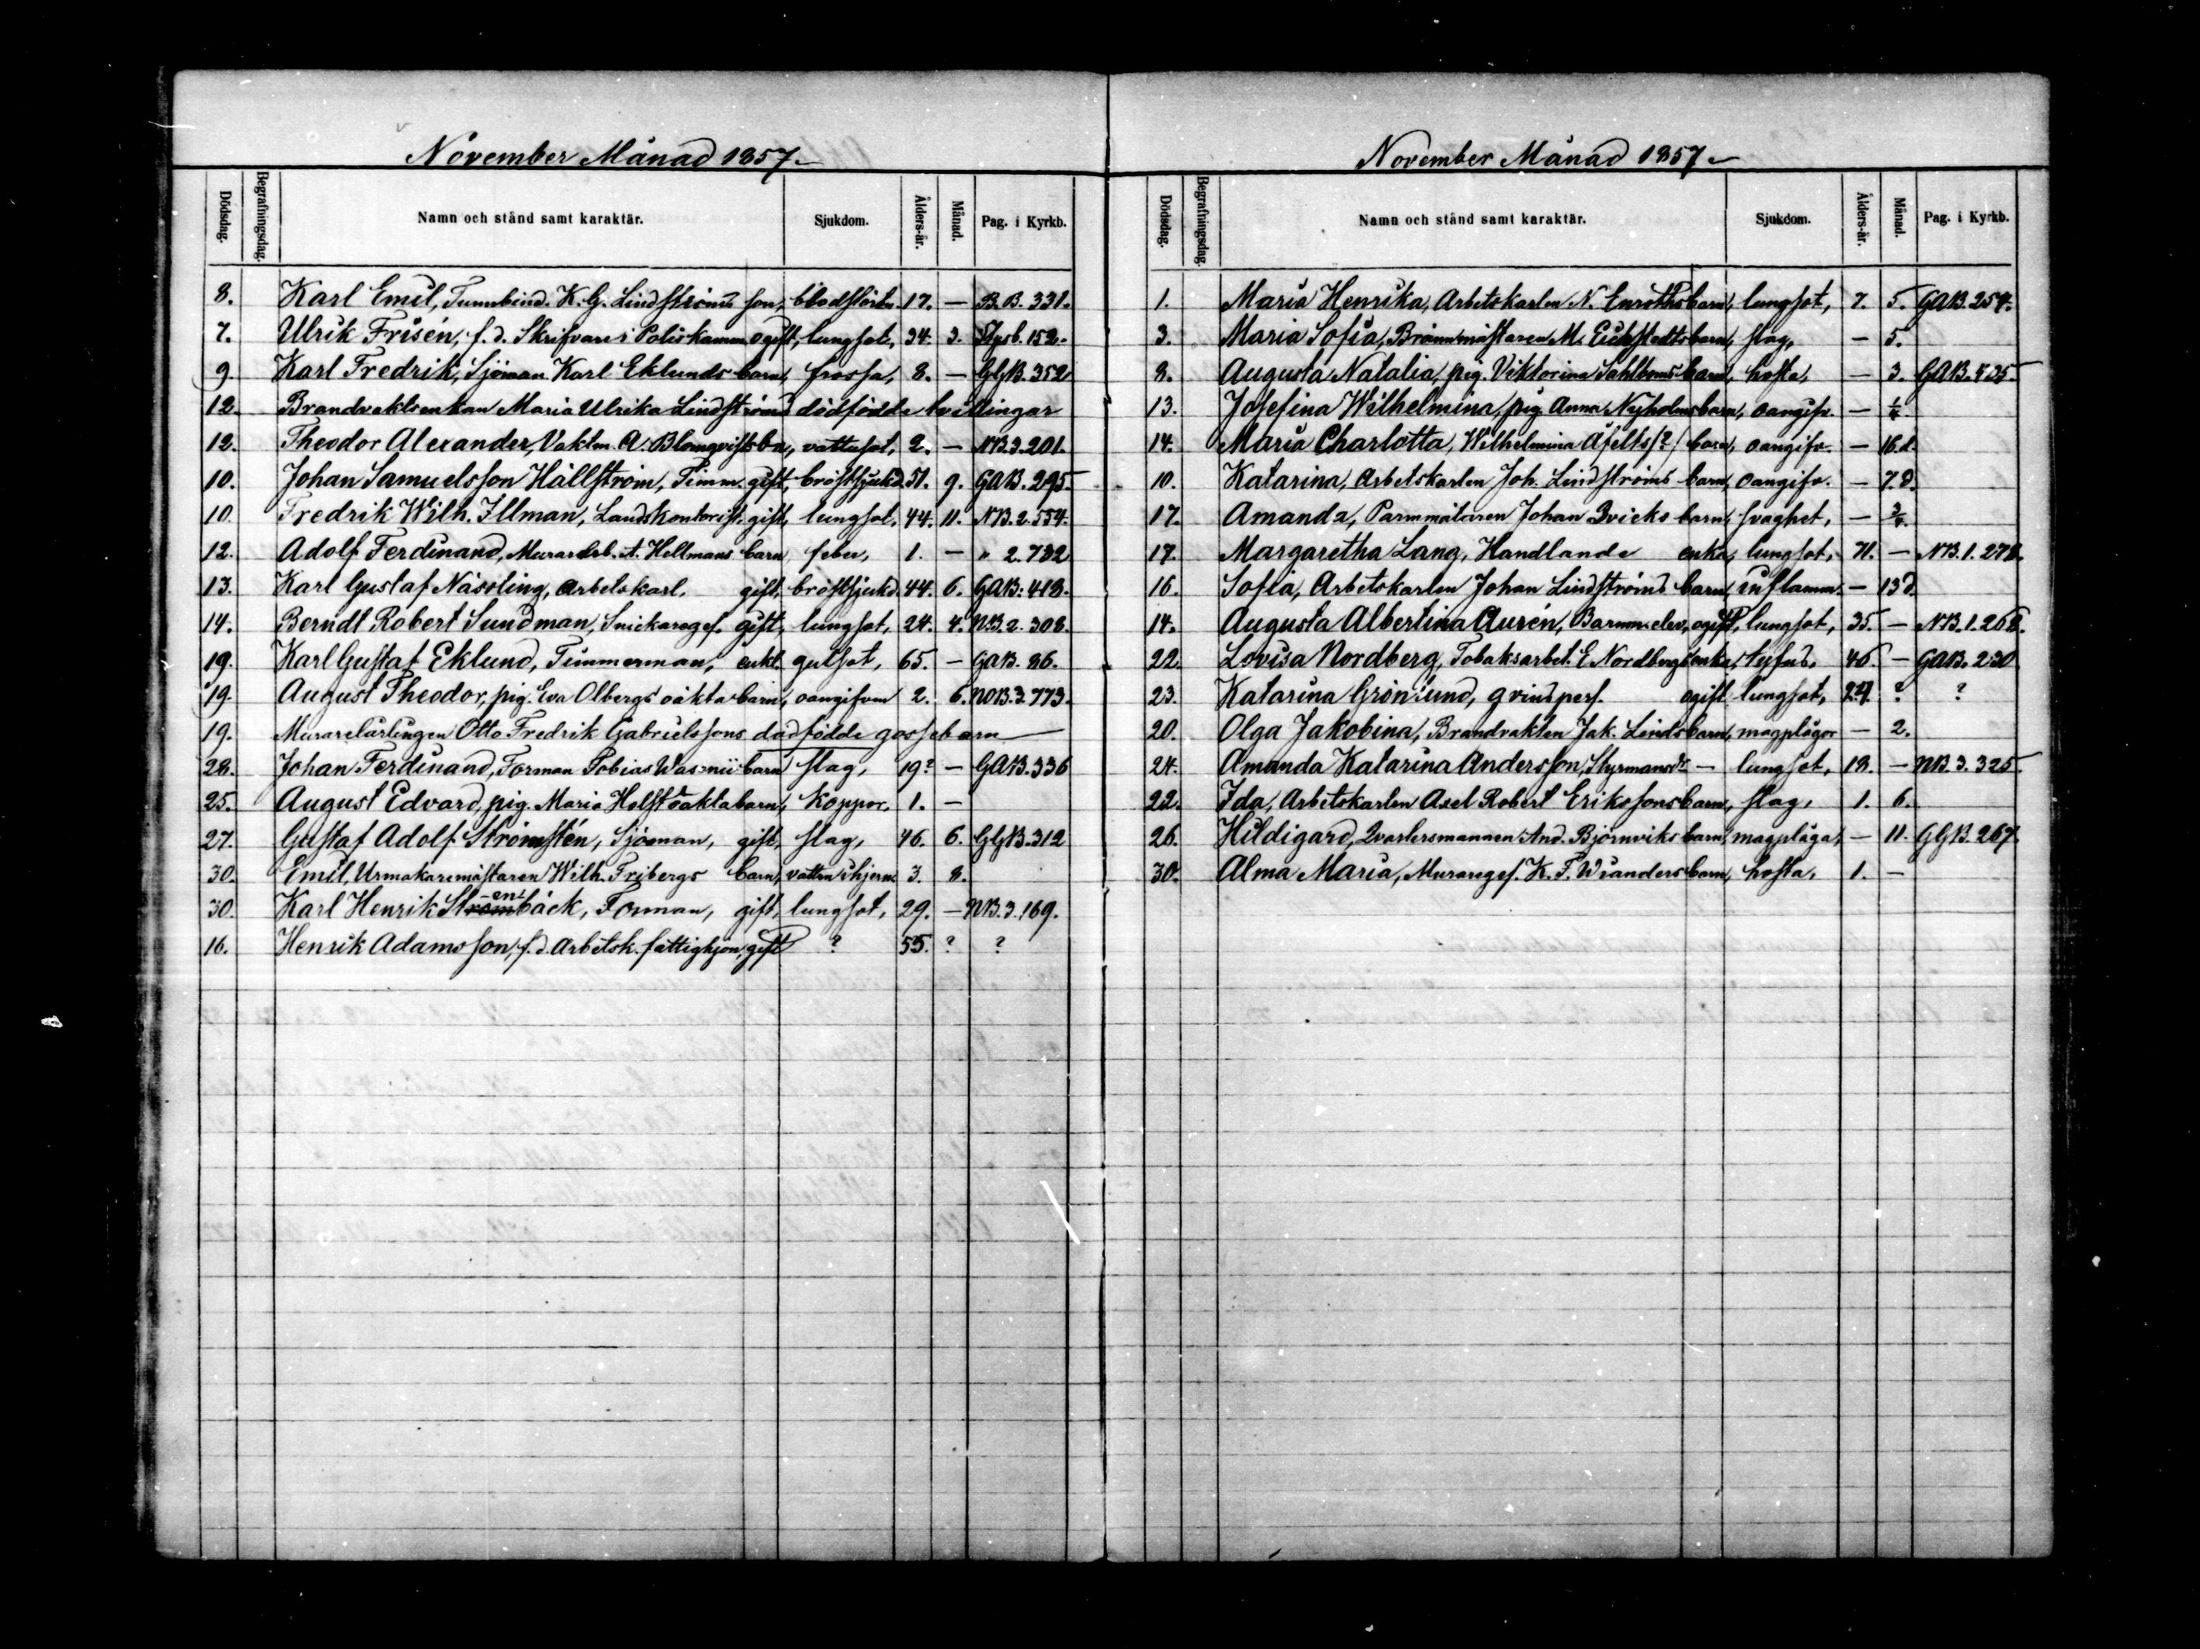 November Månad 1857.
Dödsdag. Begrafningsdag. Namn och stånd samt karaktär. Sjukdom. Ålders-år. Månad. Pag. i Kyrkb.
8. Karl Emil, Tunnbind. K. G. Lindströms son, blodstörtn. 17. — B.B. 331.
7. Ulrik Frisén, f.d. Skrifvare i Poliskamm. ogift, lungsot, 34. 3. 152.
9. Karl Fredrik, Sjöman Karl Eklunds barn, frossa, 8. — GGB. 352
12. Brandvaktsenkan Maria Ulrika Lindströms dödfödde tvillingar
12. Theodor Alexander, Vaktm. A. Blomqvists ba, vattusot, 2. — NB.3.201.
10. Johan Samuelsson Hällström, Timm. gift, bröstsjukd. 51. 9. GAB. 295.
10. Fredrik Wilh. Illman, Landskontorist. gift, lungsot, 44. 11. NB. 2. 554.
12. Adolf Ferdinand, Murarelrl. A. Hellmans barn, feber, 1. — " 2. 732
13. Karl Gustaf Nässling, Arbetskarl, gift, bröstsjukd. 44. 6. GAB: 418.
14. Berndt Robert Sundman, Snickareges. gift, lungsot, 24. 4. NB. 2. 308.
19. Karl Gustaf Eklund, Timmerman, enkl. gulsot, 65. — GAB. 86.
19. August Theodor, pig. Eva Olbergs oäkta barn, oangifven 2. 6. NB.3.773.
19. Murarelärlingen Otto Fredrik Gabrielssons dödfödde gossebarn —
28. Johan Ferdinand, Forman Tobias Wasenii barn slag, 19? — GAB. 336
25. August Edvard, pig. Maria Holst oäkta barn, Koppor, 1. —
27. Gustaf Adolf Strömstén, Sjöman, gift, slag, 46. 6. GGB. 312
30. Emil, Urmakaremästaren Wilh. Fribergs barn, vatten i hjern. 3. 8.
30. Karl Henrik Stenbäck, Forman, gift, lungsot, 29. — NB. 3. 169.
16. Henrik Adamsson, f.d. Arbetsk. fattighjon, gift ? 55. ? ?
November Månad 1857
Dödsdag. Begrafningsdag. Namn och stånd samt karaktär. Sjukdom. Ålders-år. Månad. Pag. i Kyrkb.
1. Maria Henrika, Arbetskarlen N. Enroths barn, lungsot, 7. 5. GAB. 254.
3. Maria Sofia, Brännmästaren M. Eichstedts barn, slag, — 5.
8. Augusta Natalia, pig. Viktorina Sahlboms barn, hosta, — 3. GAB. 535.
13. Josefina Wilhelmina, pig. Anna Nyholms barn, oangifv. — 1/4.
14. Maria Charlotta, Wilhelmina Åfelts(?) barn, oangifv. — 16.d.
10. Katarina, Arbetskarlen Joh. Lindströms barn, oangifv. — 7.d.
17. Amanda, Parmmätaren Johan Qvicks barn, svaghet, — 3/4.
17. Margaretha Lang, Handlande enka, lungsot, 71. — NB. 1. 278.
16. Sofia, Arbetskarlen Johan Lindströms barn, inflamm. — 13 d.
14. Augusta Albertina Aurén, Barnm. elev, ogift, lungsot, 35. — NB. 1. 268.
22. Lovisa Nordberg, Tobaksarbet. E Nordbergs enka, tyfus. 46. — GAB. 230
23. Katarina Grönlund, qvinspers. ogift lungsot, 24. ? ?
20. Olga Jakobina, Brandvakten Jak. Linds barn, magplågor — 2.
24. Amanda Katarina Andersson, Styrmansdr. — lungsot, 18. — NB. 3. 325.
22. Ida, Arbetskarlen Axel Robert Erikssons barn, slag, 1. 6.
26. Hildigard, Qvartersmannen And. Björnviks barn, magplåga, — 11. GGB. 267.
30. Alma Maria, Murareges. K. F. Wianders barn, hosta, 1. —